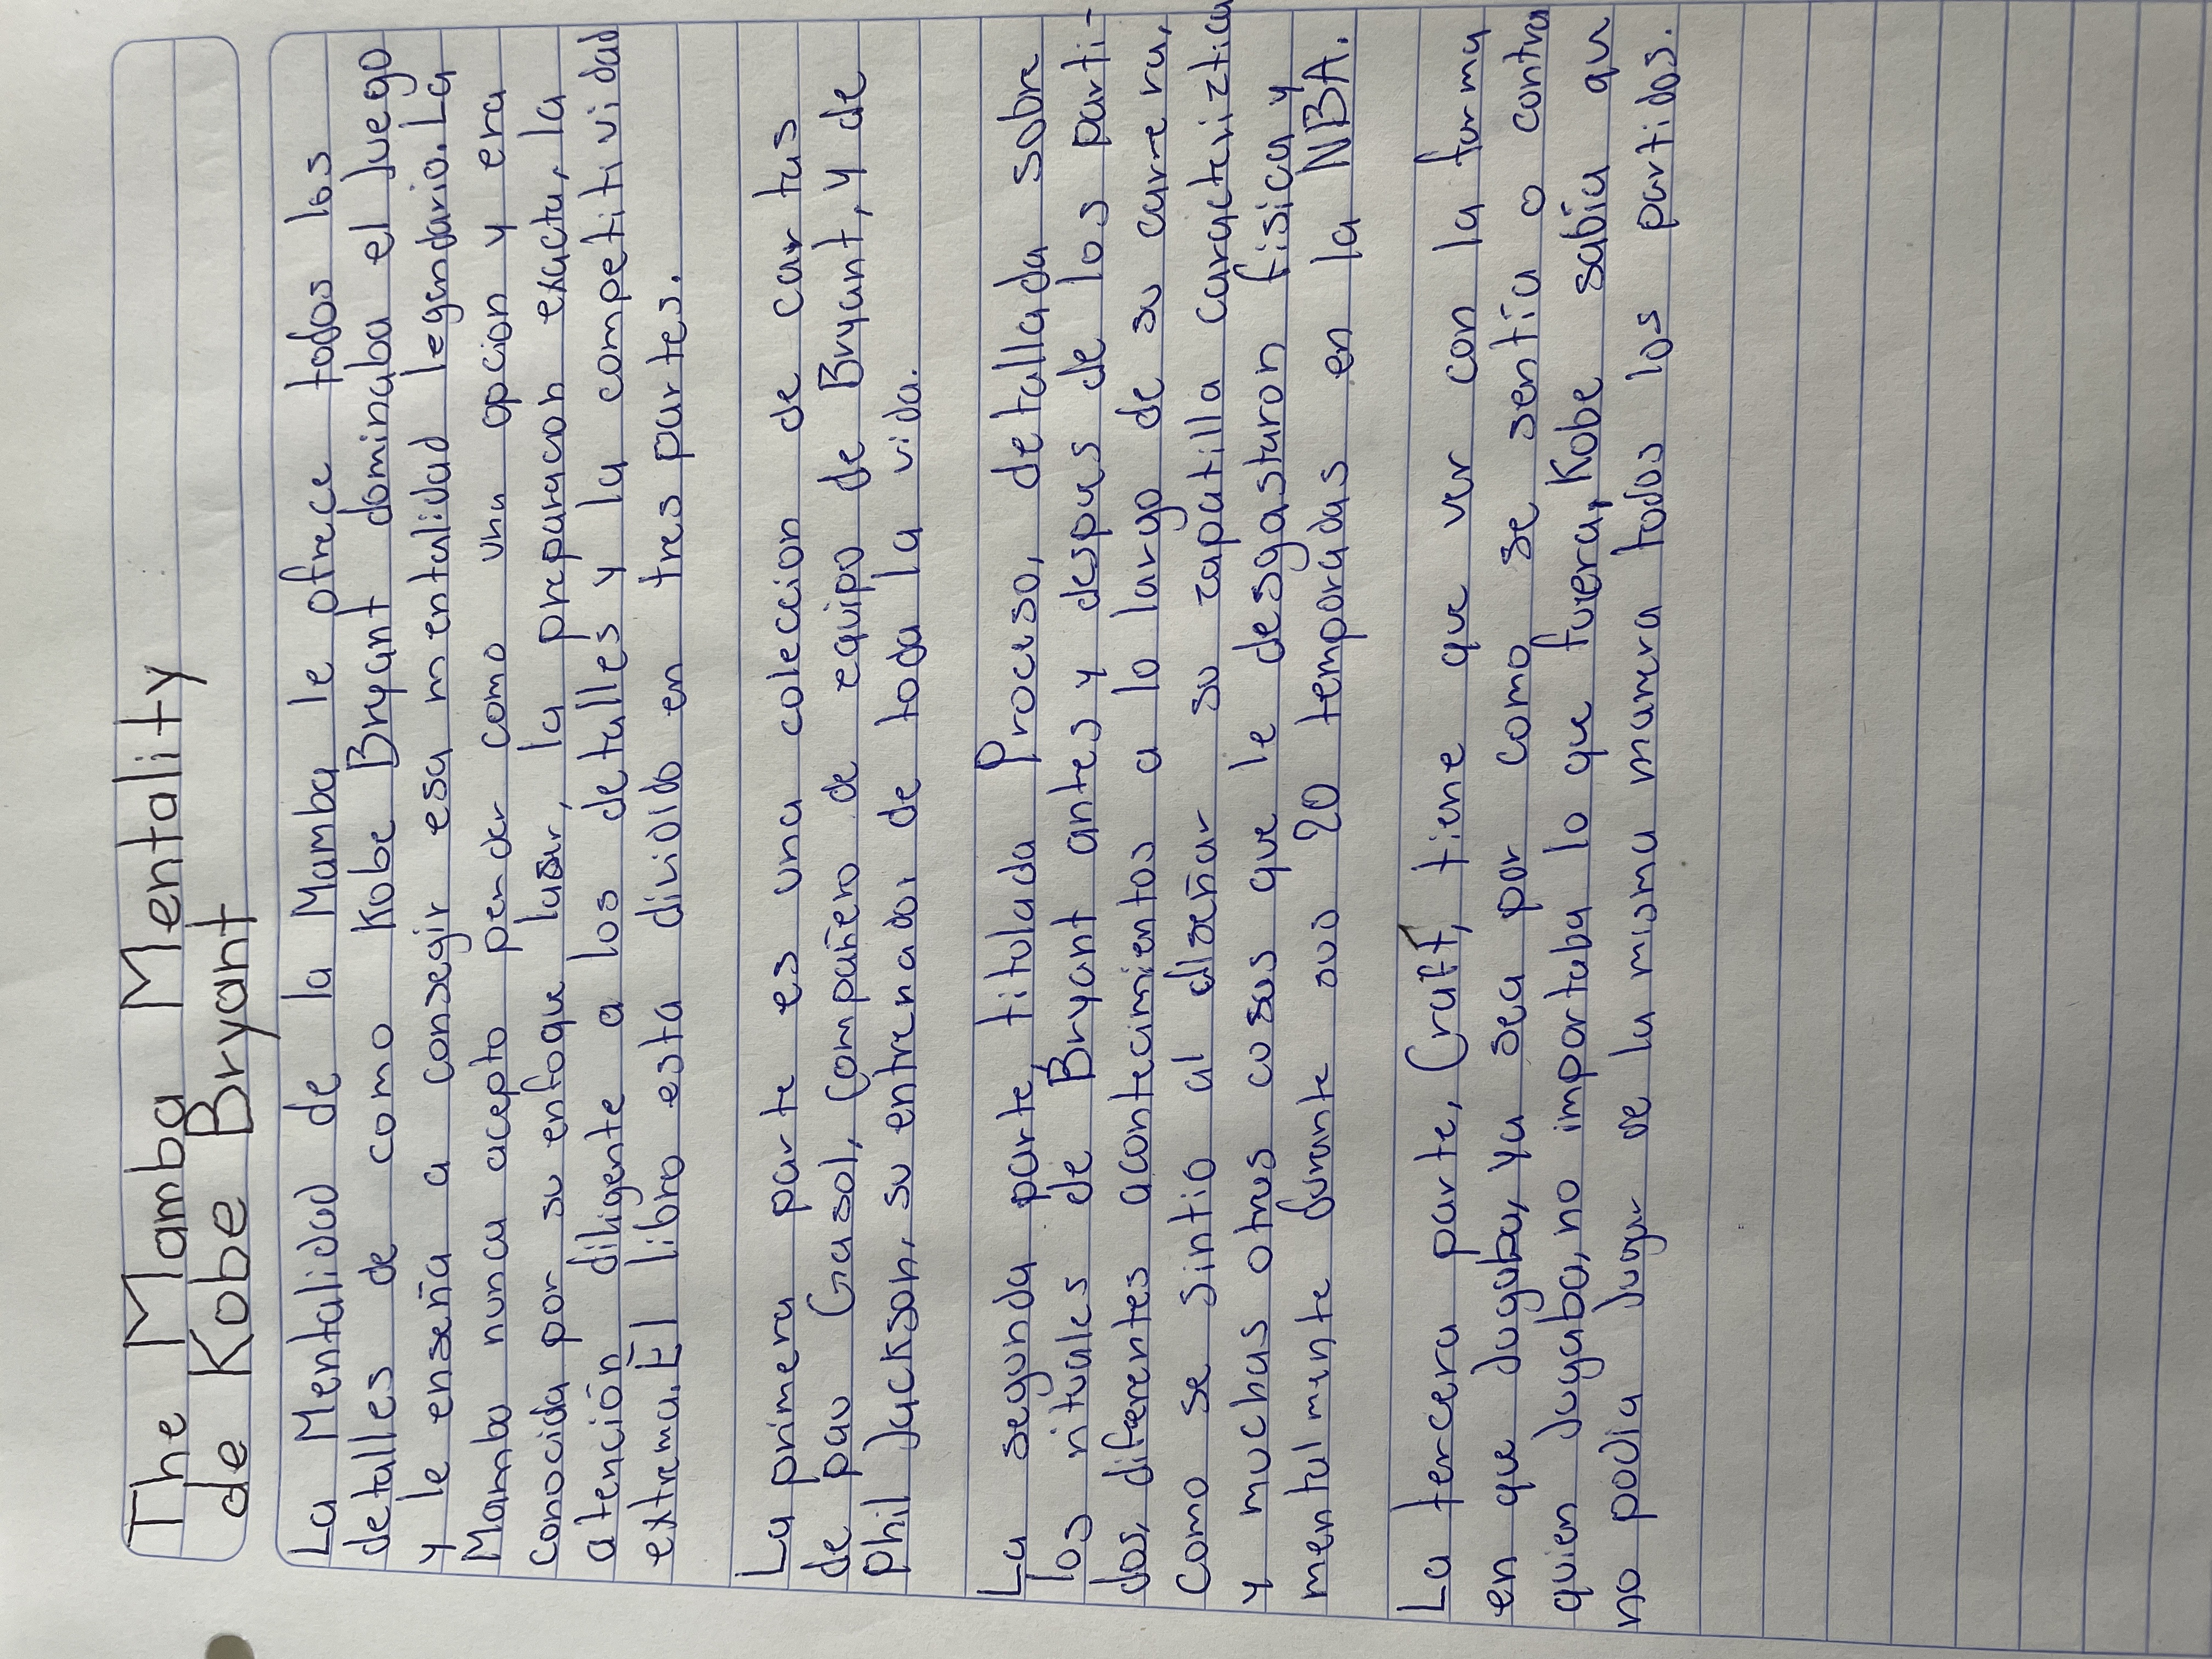 The Mamba Mentality
de Kobe Bryant
La Mentalidad de la Mamba le ofrece todos los
detalles de como Kobe Bryant dominaba el juego
y le enseña a consegir esa mentalidad legendario. La
Mamba nunca acepto perder como una opcion y era
conocida por su enfoque laser, la preparacion exacta, la
atención diligente a los detalles y la competitividad
extrema. El libro esta dividido en tres partes.
La primera parte es una coleccion de cartas
de pau Gasol, compañero de equipo de Bryant, y de
Phil Jackson, su entrenador de toda la vida.
La segunda parte titulada Proceso, detallada sobre
los rituales de Bryant antes y despues de los parti-
dos, diferentes acontecimientos a lo largo de su carrera,
como se sintio al diseñar su zapatilla caracteriztica
y muchas otras cosas que le desgastaron fisica y
mentalmente durante sus 20 temporadas en la NBA.
La tercera parte, Craft, tiene que ver con la forma
en que jugaba, Ya sea por como se sentía o contra
quien jugaba, no importaba lo que fuera, Kobe sabía que
no podia jugar de la misma manera todos los partidos.